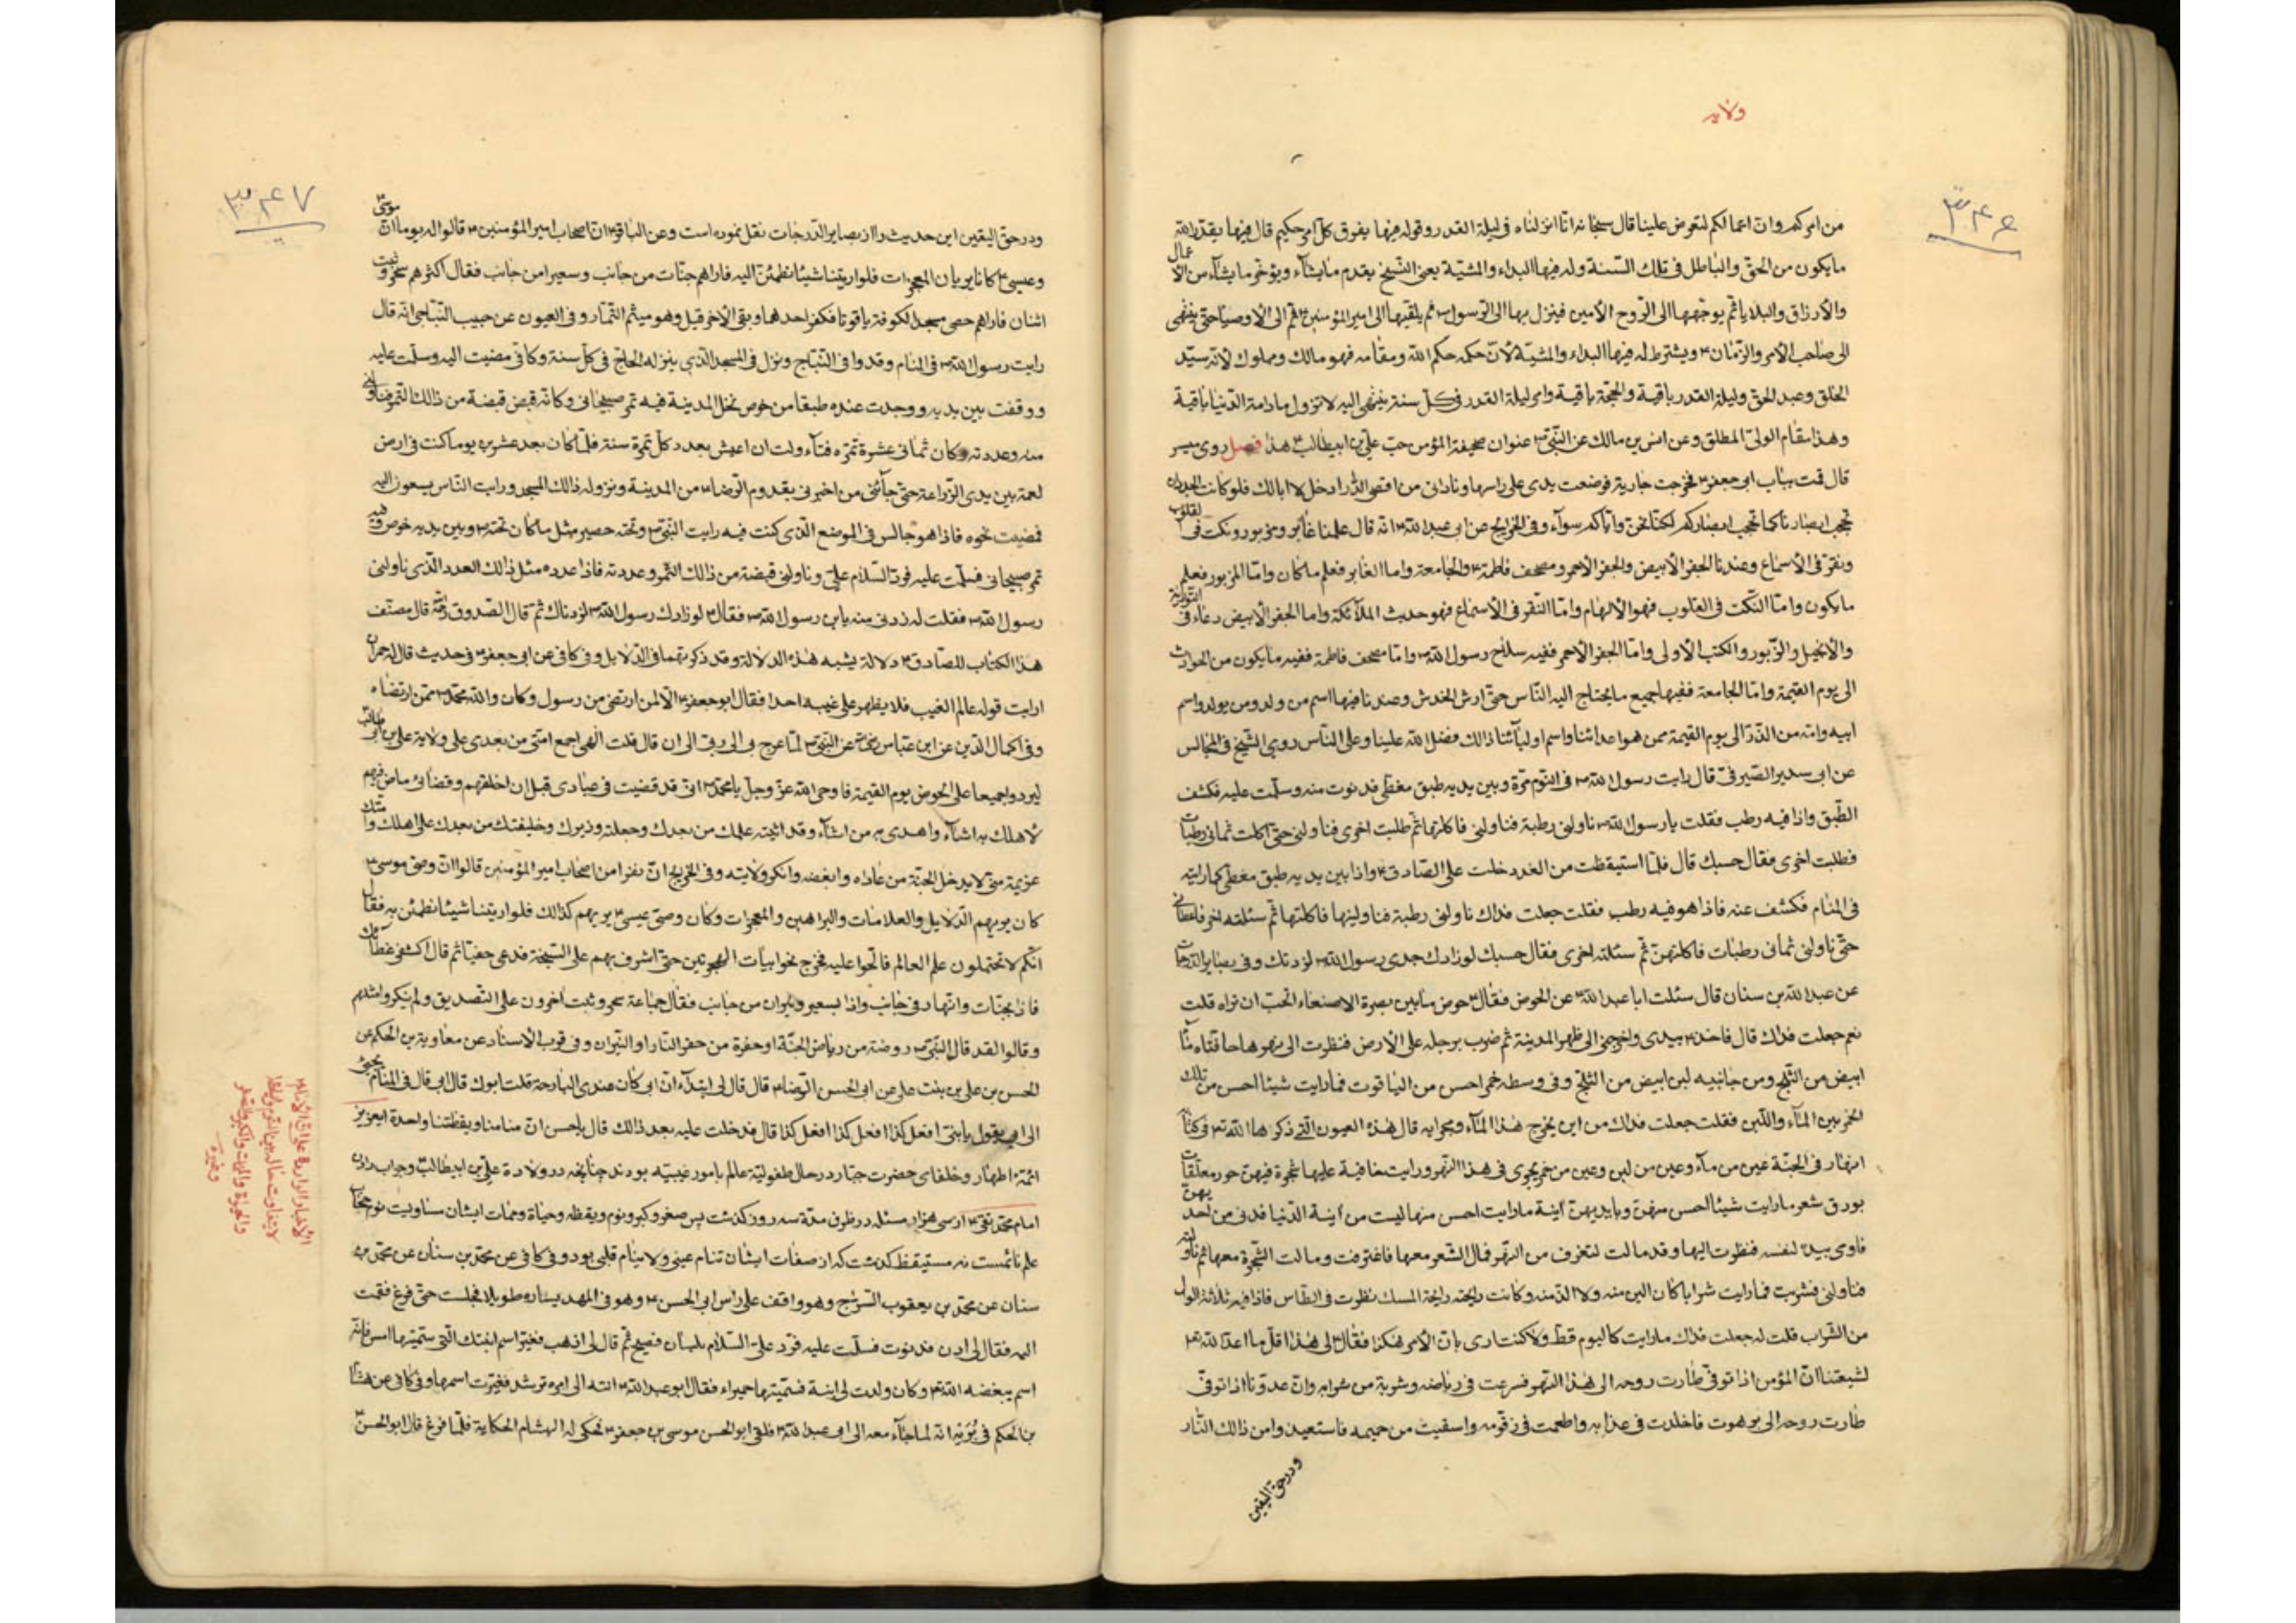 ولایه
۳۴۶
من امرکم وان اعمالکم لتعرض علینا قال سبحانه انا انزلناه فی لیلة القدر وقوله فیها یفرق کل امر حکیم قال فیها یقدر الله
مایکون من الحق والباطل فی تلک السنة وله فیها البداء والمشیة یعنی الشیخ یقدم مایشاء ویؤخر مایشاء من الا عمال
والارزاق والبلایا ثم یوجهها الی الروح الامین فینزل بها الی الرسول ص ثم یلقیها الی امیر المؤمنین ع ثم الی الاوصیا حتی ینتهی
الی صاحب الامر والزمان ع ویشترط له فیها البداء والمشیة لان حکمه حکم الله ومقامه فهو مالک ومملوک لانه سید
الخلق وعبد الحق ولیلة القدر باقیة والحجة باقیة وامر لیلة القدر فی کل سنة ینتهی الیه لاتزول مادامة الدنیا باقیة
وهذا مقام الولی المطلق وعن انس بن مالک عن النبی ص عنوان صحیفة المؤمن حب علی بن ابیطالب ع هذا فصل روی میسر
قال قمت بباب ابی جعفر ع فخرجت جاریة فوضعت یدی علی راسها ونادانی من اقصی الدار ادخل لا ابالک فلو کانت الجدران
تحجب ابصارنا کما تحجب ابصارکم لکنا نحن وایاکم سوآء وفی الخرایج عن ابی عبدالله ع انه قال علمنا غابر ومزبور ونکت فی القلوب
ونقر فی الاسماع وعندنا الجفر الابیض والجفر الاحمر ومصحف فاطمة ع والجامعة واما الغابر فعلم ماکان واما المزبور فعلم
مایکون واما النکت فی القلوب فهو الالهام واما النقر فی الاسماع فهو حدیث الملآئکة واما الجفر الابیض دعاء فی التوریة
والانجیل والزبور والکتب الاولی واما الجفر الاحمر ففیه سلاح رسول الله ص واما مصحف فاطمة ففیه مایکون من الحوادث
الی یوم القیمة واما الجامعة ففیها جمیع مایحتاج الیه الناس حتی ارش الخدش وعندنا فیها اسم من ولد ومن یولد واسم
ابیه وامه من الذر الی یوم القیمة ممن هو اعدائنا واسم اولیآئنا ذالک فضل الله علینا وعلی الناس روی الشیخ فی المجالس
عن ابی سدیر الصیرفی قال رایت رسول الله ص فی النوم مرة وبین یدیه طبق مغطی فدنوت منه وسلمت علیه فکشف
الطبق واذا فیه رطب فقلت یارسول الله ص ناولنی رطبة فناولنی فاکلتها ثم طلبت اخری فناولنی حتی اکلت ثمانی رطبات
فطلبت اخری فقال حسبک قال فلما استیقظت من الغد دخلت علی الصادق ع واذا بین یدیه طبق مغطی کما رایته
فی المنام فکشف عنه فاذا هو فیه رطب فقلت جعلت فداک ناولنی رطبة فناولنیها فاکلتها ثم سئلته اخر فاعطانی
حتی ناولنی ثمانی رطبات فاکلتهن ثم سئلته اخری فقال حسبک لوزادک جدی رسول الله ص لزدتک وفی بصایر الدرجات
عن عبدالله بن سنان قال سئلت ابا عبدالله ع عن الحوض فقال ع حوض مابین بصرة الا صنعاء اتحب ان تراه قلت
نعم جعلت فداک قال فاخذ ع بیدی واخرجنی الی ظهر المدینة ثم ضرب برجله علی الارض فنظرت الی نهر
ابیض من الثلج ومن جانبیه لبن ابیض من الثلج وفی وسطه خمر احسن من الیاقوت فما رایت شیئا احسن من تلک
الخمر بین المآء واللبن فقلت جعلت فداک من این یخرج هذا المآء ومجرایه قال هذه العیون التی ذکرها الله تع فی کتابه
انهار فی الجنة عین من مآء وعین من لبن وعین من خمر یجری فی هذا النهر ورایت حافیة علیها شجرة فیهن حور معلقات
بورق شعر مارایت شیئا احسن منهن وبایدیهن آنیة مارایت احسن منها لیست من آنیة الدنیا فدنی من احد یهن
فاوی بیده لنفسه فنظرت الیها وقد مالت لتغرف من النهر فمال الشعر معها فاغترفت ومالت الشجرة معها ثم ناولته
فناولنی فشربت فما رایت شرابا کان الین منه ولا الذ منه وکانت رایحته رایحة المسک نظرت فی الطاس فاذا فیه ثلاثة الوان
من الشراب قلت له جعلت فداک مارایت کالیوم قط ولا کنت اری بان الامر هکذا فقال لی هذا اقل ما اعد الله تع
لشیعتنا ان المؤمن اذا توفی طارت روحه الی هذا النهر فسرعت فی ریاضه وشربة من شرابه وان عدونا اذا توفی
طارت روحه الی برهوت فاخلدت فی عذابه واطعمت فی زقومه واسقیت من حمیمه فاستعیذوا من ذالک النار
ودر حق الیقین
۳۴۷
ودر حق الیقین این حدیث را از بصایر الدرجات نقل نموده است وعن الباقر ع ان اصحاب امیر المؤمنین ع قالوا له یوما ان موسی
وعیسی ع کانا یریان المعجزات فلو اریتنا شیئا نطمئن الیه فاراهم جنات من جانب وسعیرا من جانب فقال اکثرهم سحر وثبت
اثنان فاراهم حصی مسجد الکوفة یاقوتا فکفر احدهما وبقی الاخر قیل وهو میثم التمار وفی العیون عن حبیب النباجی انه قال
رایت رسول الله ص فی المنام وقد وافی النباج ونزل فی المسجد الذی ینزله الحاج فی کل سنة وکانی مضیت الیه وسلمت علیه
ووقفت بین یدیه ووجدت عنده طبقا من خوص نخل المدینة فیه تمر صیحانی وکانه قبض قبضة من ذالک التمر فناولنی
منه وعددته وکان ثمانی عشرة تمره فتآولت ان اعیش بعدد کل تمرة سنة فلما کان بعد عشرین یوما کنت فی ارض
لعمة بین یدی الزراعة حتی جآئنی من اخبرنی بقدوم الرضا ع من المدینة ونزوله ذالک المسجد ورایت الناس یسعون الیه
فمضیت نحوه فاذا هو جالس فی الموضع الذی کنت فیه رایت النبی ص وتحته حصیر مثل ماکان تحته ص وبین یدیه خوص فیه
تمر صیحانی فسلمت علیه فرد السلام علی وناولنی قبضة من ذالک التمر وعددته فاذا عدده مثل ذالک العدد الذی ناولنی
رسول الله ص فقلت له زدنی منه یابن رسول الله ص فقال ع لوزادک رسول الله ص لزدناک ثم قال الصدوق قال مصنف
هذا الکتاب للصادق ع دلالة یشبه هذه الدلالة وقد ذکرتهما فی الدلایل وفی کافی عن ابی جعفر ع فی حدیث قال له حمران
ارایت قوله عالم الغیب فلا یظهر علی غیبه احدا فقال ابو جعفر ع الا لمن ارتضی من رسول وکان والله محمد ص ممن ارتضاه
وفی اکمال الدین عن ابن عباس عن النبی ص لما عرج بی الی ربی الی ان قال قلت الهی اجمع امتی من بعدی علی ولایة علی بن ابی طالب
لیردوا جمیعا علی الحوض یوم القیمة فاوحی الله عز وجل یا محمد ص انی قد قضیت فی عبادی قبل ان اخلقهم وقضائی ماض فیهم
لاهلک به اشآء واهدی به من اشآء وقد اتیته علمک من بعدک وجعلته وزیرک وخلیفتک من بعدک علی اهلک وامتک
عزیمة منی لایدخل الجنة من عاداه وابغضه وانکر ولایته وفی الخرایج ان نفرا من اصحاب امیر المؤمنین قالوا ان وصی موسی ع
کان یریهم الدلایل والعلامات والبراهین والمعجزات وکان وصی عیسی ع یریهم کذالک فلو اریتنا شیئا نطمئن به فقال
انکم لاتحتملون علم العالم فالحوا علیه فخرج نحو ابیات الهجریین حتی اشرف بهم علی السبخة فدعی خفیا ثم قال اکشفی غطآئک
فاذا بجنات وانهار فی جانب واذا بسعیر ونیران من جانب فقال جماعة سحر وثبت آخرون علی التصدیق ولم ینکروا مثلهم
وقالوا لقد قال النبی ص روضة من ریاض الجنة او حفرة من حفر النار او النیران وفی قرب الاسناد عن معاویة بن الحکم عن
الحسن بن علی بن بنت علی عن ابی الحسن الرضا ع قال قال لی ابتدآء ان ابی کان عندی البارحة قلت ابوک قال ابی قال فی المنام یجیئ
الی ابی یقول یا بنی افعل کذا افعل کذا افعل کذا قال فدخلت علیه بعد ذالک قال یاحسن ان منامنا ویقظتنا واحدة ایعزیز
ائمهٔ اطهار وخلفای حضرت جبار در حال طفولیة عالم بامور غیبیه بودند چنانچه در ولادة علی بن ابیطالب ع وجواب دادن
امام محمد تقی ع از سی هزار مسئله در ظرف مدة سه روز کذشت پس صغر وکبر ونوم ویقظه وحیاة وممات ایشان مساویست نوم
علم نائمست نه مستیقظ کذشت که از صفات ایشان تنام عینی ولاینام قلبی بود وفی کافی عن محمد بن سنان عن محمد بن
سنان عن محمد بن یعقوب السراج وهو واقف علی راس ابی الحسن ع وهو فی المهد یساره طویلا فجلست حتی فرغ فقمت
الیه فقال لی ادن فدنوت فسلمت علیه فرد علی السلام بلسان فصیح ثم قال لی اذهب فغیر اسم ابنتک التی سمیتها امس فانه
اسم یبغضه الله تع وکان ولدت لی ابنة فسمیتها حمیراء فقال ابو عبدالله ع انته الی امره ترشد فغیرت اسمها وفی کافی عن هشام
بن الحکم فی بُرَیْه انه لما جآء معه الی ابی عبدالله ع فلقی ابو الحسن موسی بن جعفر ع فحکی له الهشام الحکایة فلما فرغ قال ابو الحسن ع
الاخبار الواردة علی ان الائمة ع
لایتفاوت حاله بین النوم والیقظة
والحیاة والمیت والکبر والصغر
وغیره